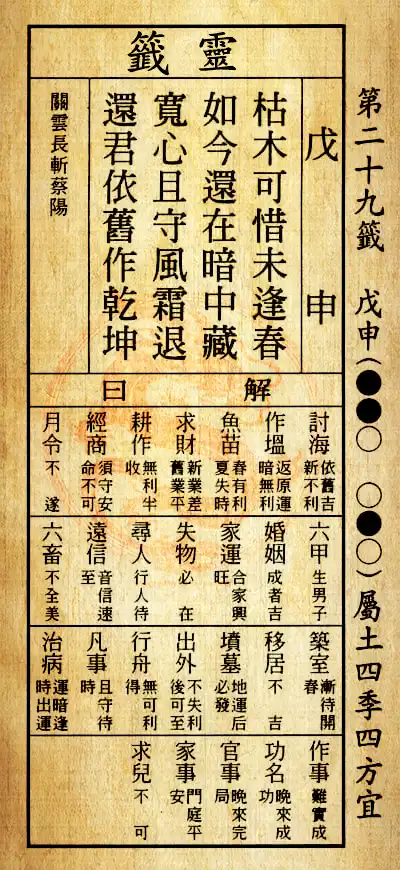 第二十九籤　戊申(●●○　○●○)屬土四季四方宜
靈籤
戊申
枯木可惜未逢春
如今還在暗中藏
寬心且守風霜退
還君依舊作乾坤
關雲長斬蔡陽
解曰
討海 依舊吉 新不利
作塭 返原運 暗無利
魚苗 春有利 夏失時
求財 新業差 舊業平
耕作 無利半收
經商 須守安 命不可
月令 不遂
六甲 生男子
婚姻 成者吉
家運 合家興旺
失物 必在
尋人 行人待
遠信 音信速至
六畜 不全美
築室 漸待開春
移居 不吉
墳墓 地運后必發
出外 不失利 後可至
行舟 無可利得
凡事 且守待時
治病 運暗逢 時出運
作事 難實成
功名 晚來成功
官事 晚來完局
家事 門庭平安
求兒 不可